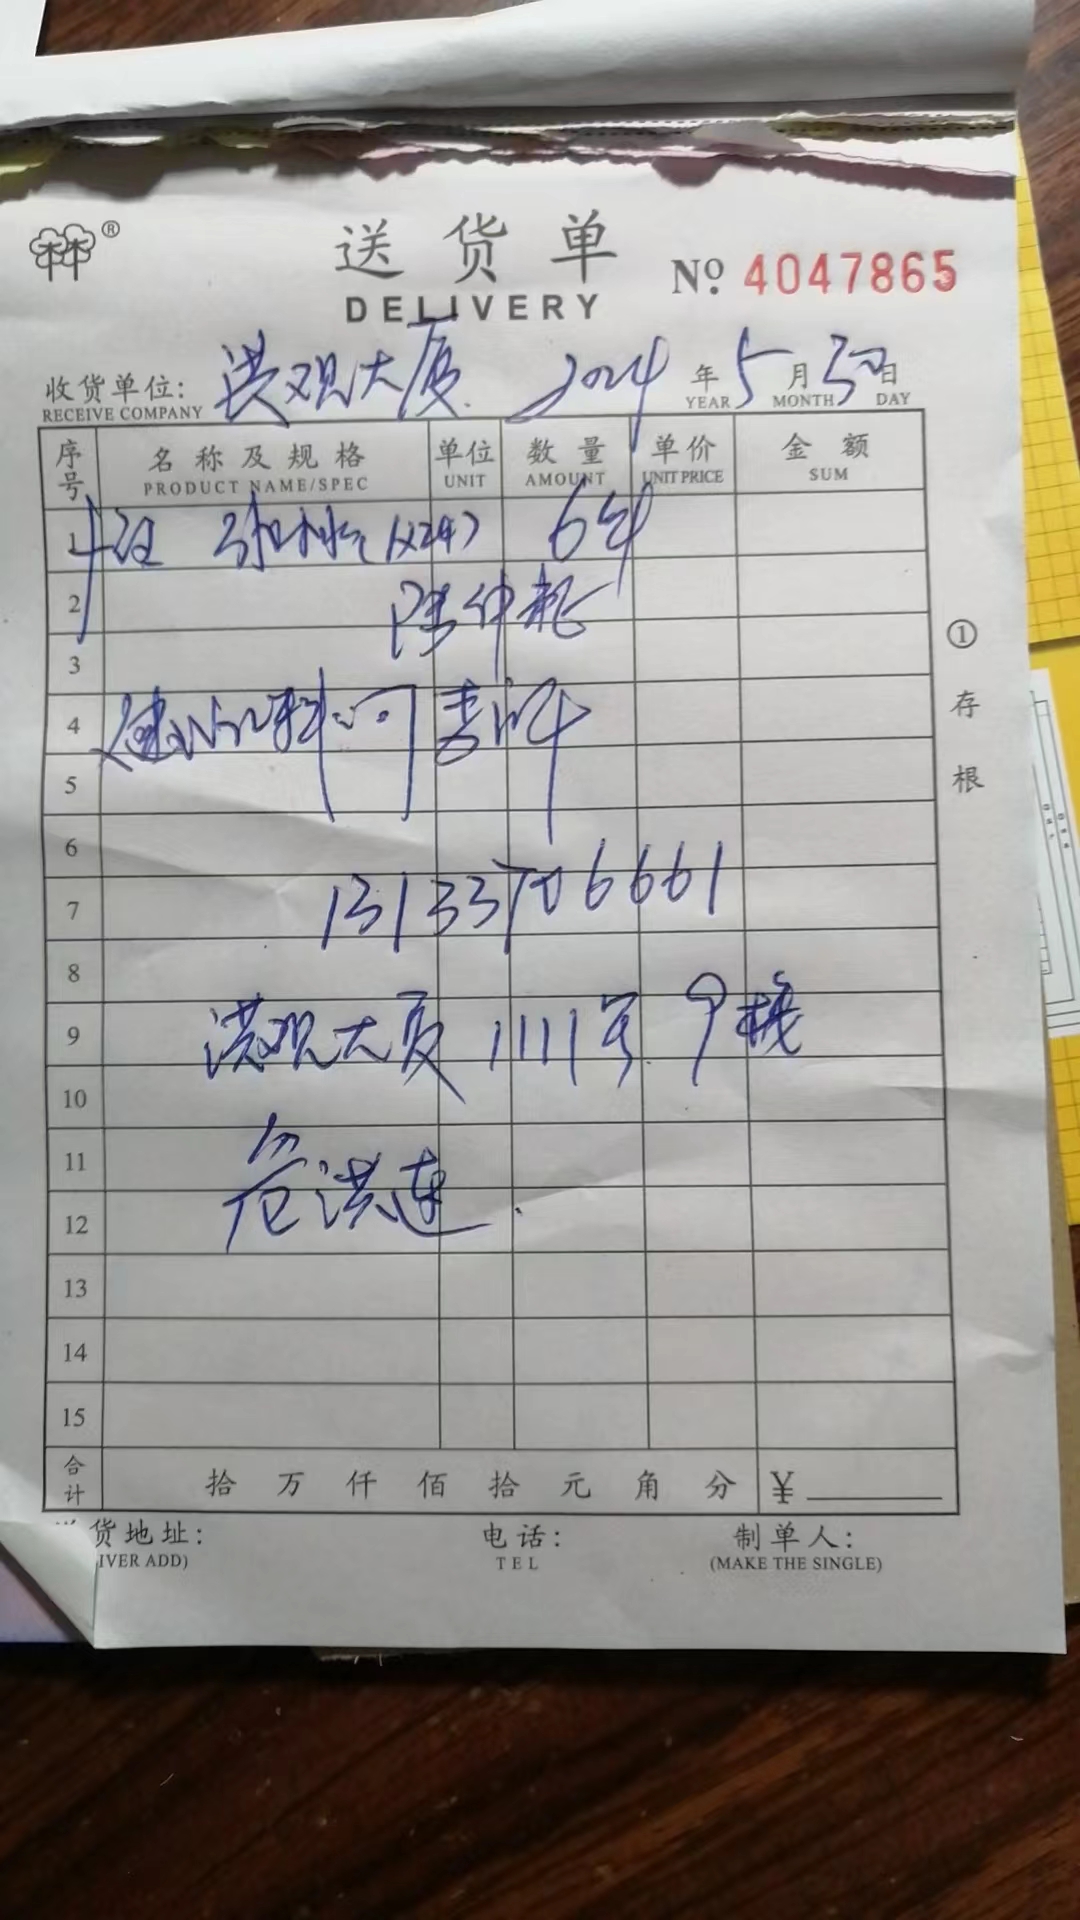 送货单
DELIVERY
№ 4047865
收货单位: 洪观大厦. 2024 年 5 月 30 日
RECEIVE COMPANY YEAR MONTH DAY
序号 名称及规格 单位 数量 单价 金额
PRODUCT NAME/SPEC UNIT AMOUNT UNIT PRICE SUM
1
2
3
4
5
6
7 13133706661
8
9 洪观大厦 1111号
10
11
危洪连
12
13
14
15
合计 拾 万 仟 佰 拾 元 角 分 ¥
①存根
货地址: 电话: 制单人:
IVER ADD) TEL (MAKE THE SINGLE)